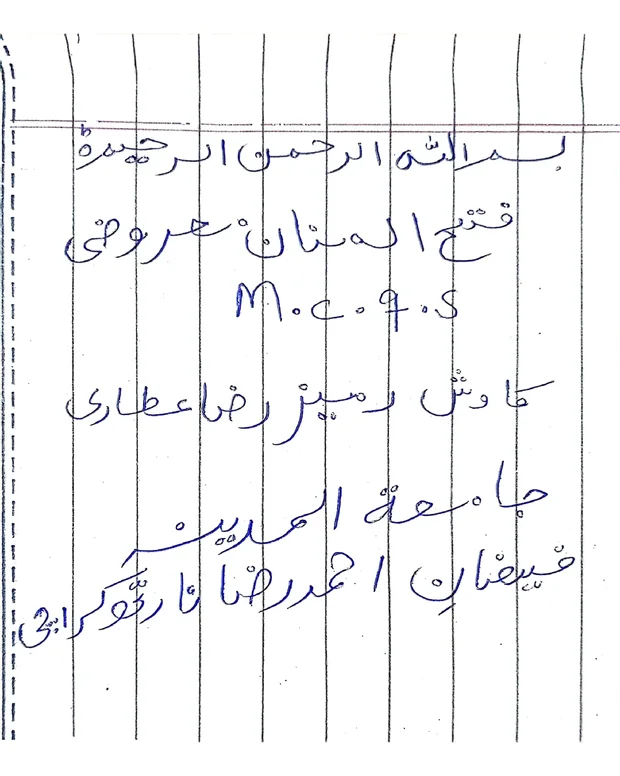 بسم اللہ الرحمن الرحیم ط
فتح المنان معروضی
M.C.Q.S
کاوش رمیز رضا عطاری
جامعۃ المدینہ
فیضانِ احمد رضا نارتھ کراچی